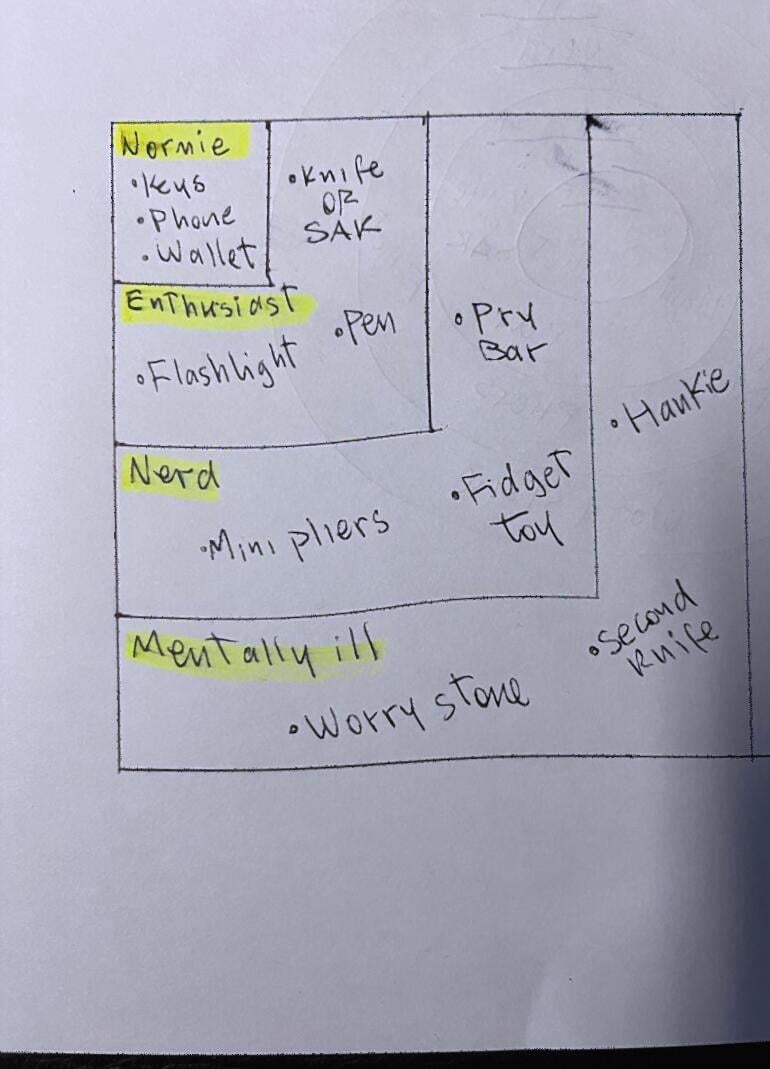 Normie
• Keys
• Phone
• Wallet
• Knife
OR
SAK
Enthusiast
• Flashlight
• Pen
Nerd
• Mini pliers
• Pry
Bar
• Fidget
toy
Mentally ill
• Worry stone
• Hankie
• Second
Knife